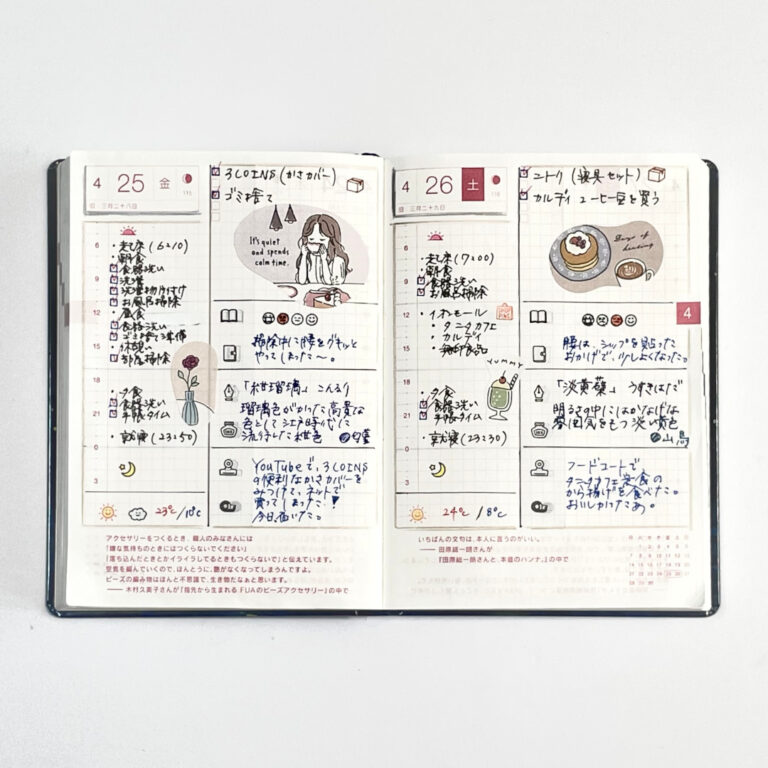 4 25 金
旧 三月二十八日
116
3COINS (かさカバー)
ゴミ捨て
It's quiet
and spends
calm time.
6
・起床 (6:20)
・朝食
食器洗い
洗濯
洗濯物片付け
お風呂掃除
9
12
・昼食
食器洗い
ゴミ捨て準備
部屋掃除
15
18
・夕食
食器洗い
手帳タイム
21
・就寝 (23:50)
0
3
23℃/10℃
掃除中に腰をグキッと
やってしまった〜。
「紺瑠璃」こんるり
瑠璃色がかった高貴な
色として江戸時代に
流行した紺色
YouTubeで、3COINS
の便利なかさカバーを
みつけて、ネットで
買ってしまった!
今日届いた。
アクセサリーをつくるとき、職人のみなさんには
「嫌な気持ちのときにはつくらないでください」
「落ち込んだときとかイライラしてるときもつくらないで」と伝えています。
空気を編んでいくので、ほんとうに、艶がなくなってしまうんですよ。
ビーズの編み物はほんと不思議で、生き物だなぁと思います。
—— 木村久美子さんが『指先から生まれる、FUAのビーズアクセサリー』の中で
4 26 土
旧 三月二十九日
ニトリ (寝具セット)
カルディ コーヒー豆を買う
Days of
healing
6
・起床 (7:00)
・朝食
食器洗い
お風呂掃除
9
12
・イオンモール
・タニタカフェ
・カルディ
15
YUMMY
18
・夕食
食器洗い
手帳タイム
21
・就寝 (23:30)
0
3
24℃/8℃
4
腰は、シップを貼った
おかげで、少しよくなった。
「淡黄蘗」うすきはだ
明るさの中にはかなげな
雰囲気をもつ淡い黄色
フードコートで
タニタカフェ定食の
から揚げを食べた。
おいしかったあ。
いちばんの文句は、本人に言うのがいい。
—— 田原総一朗さんが
『田原総一朗さんと、本蔵のハンナ。』の中で